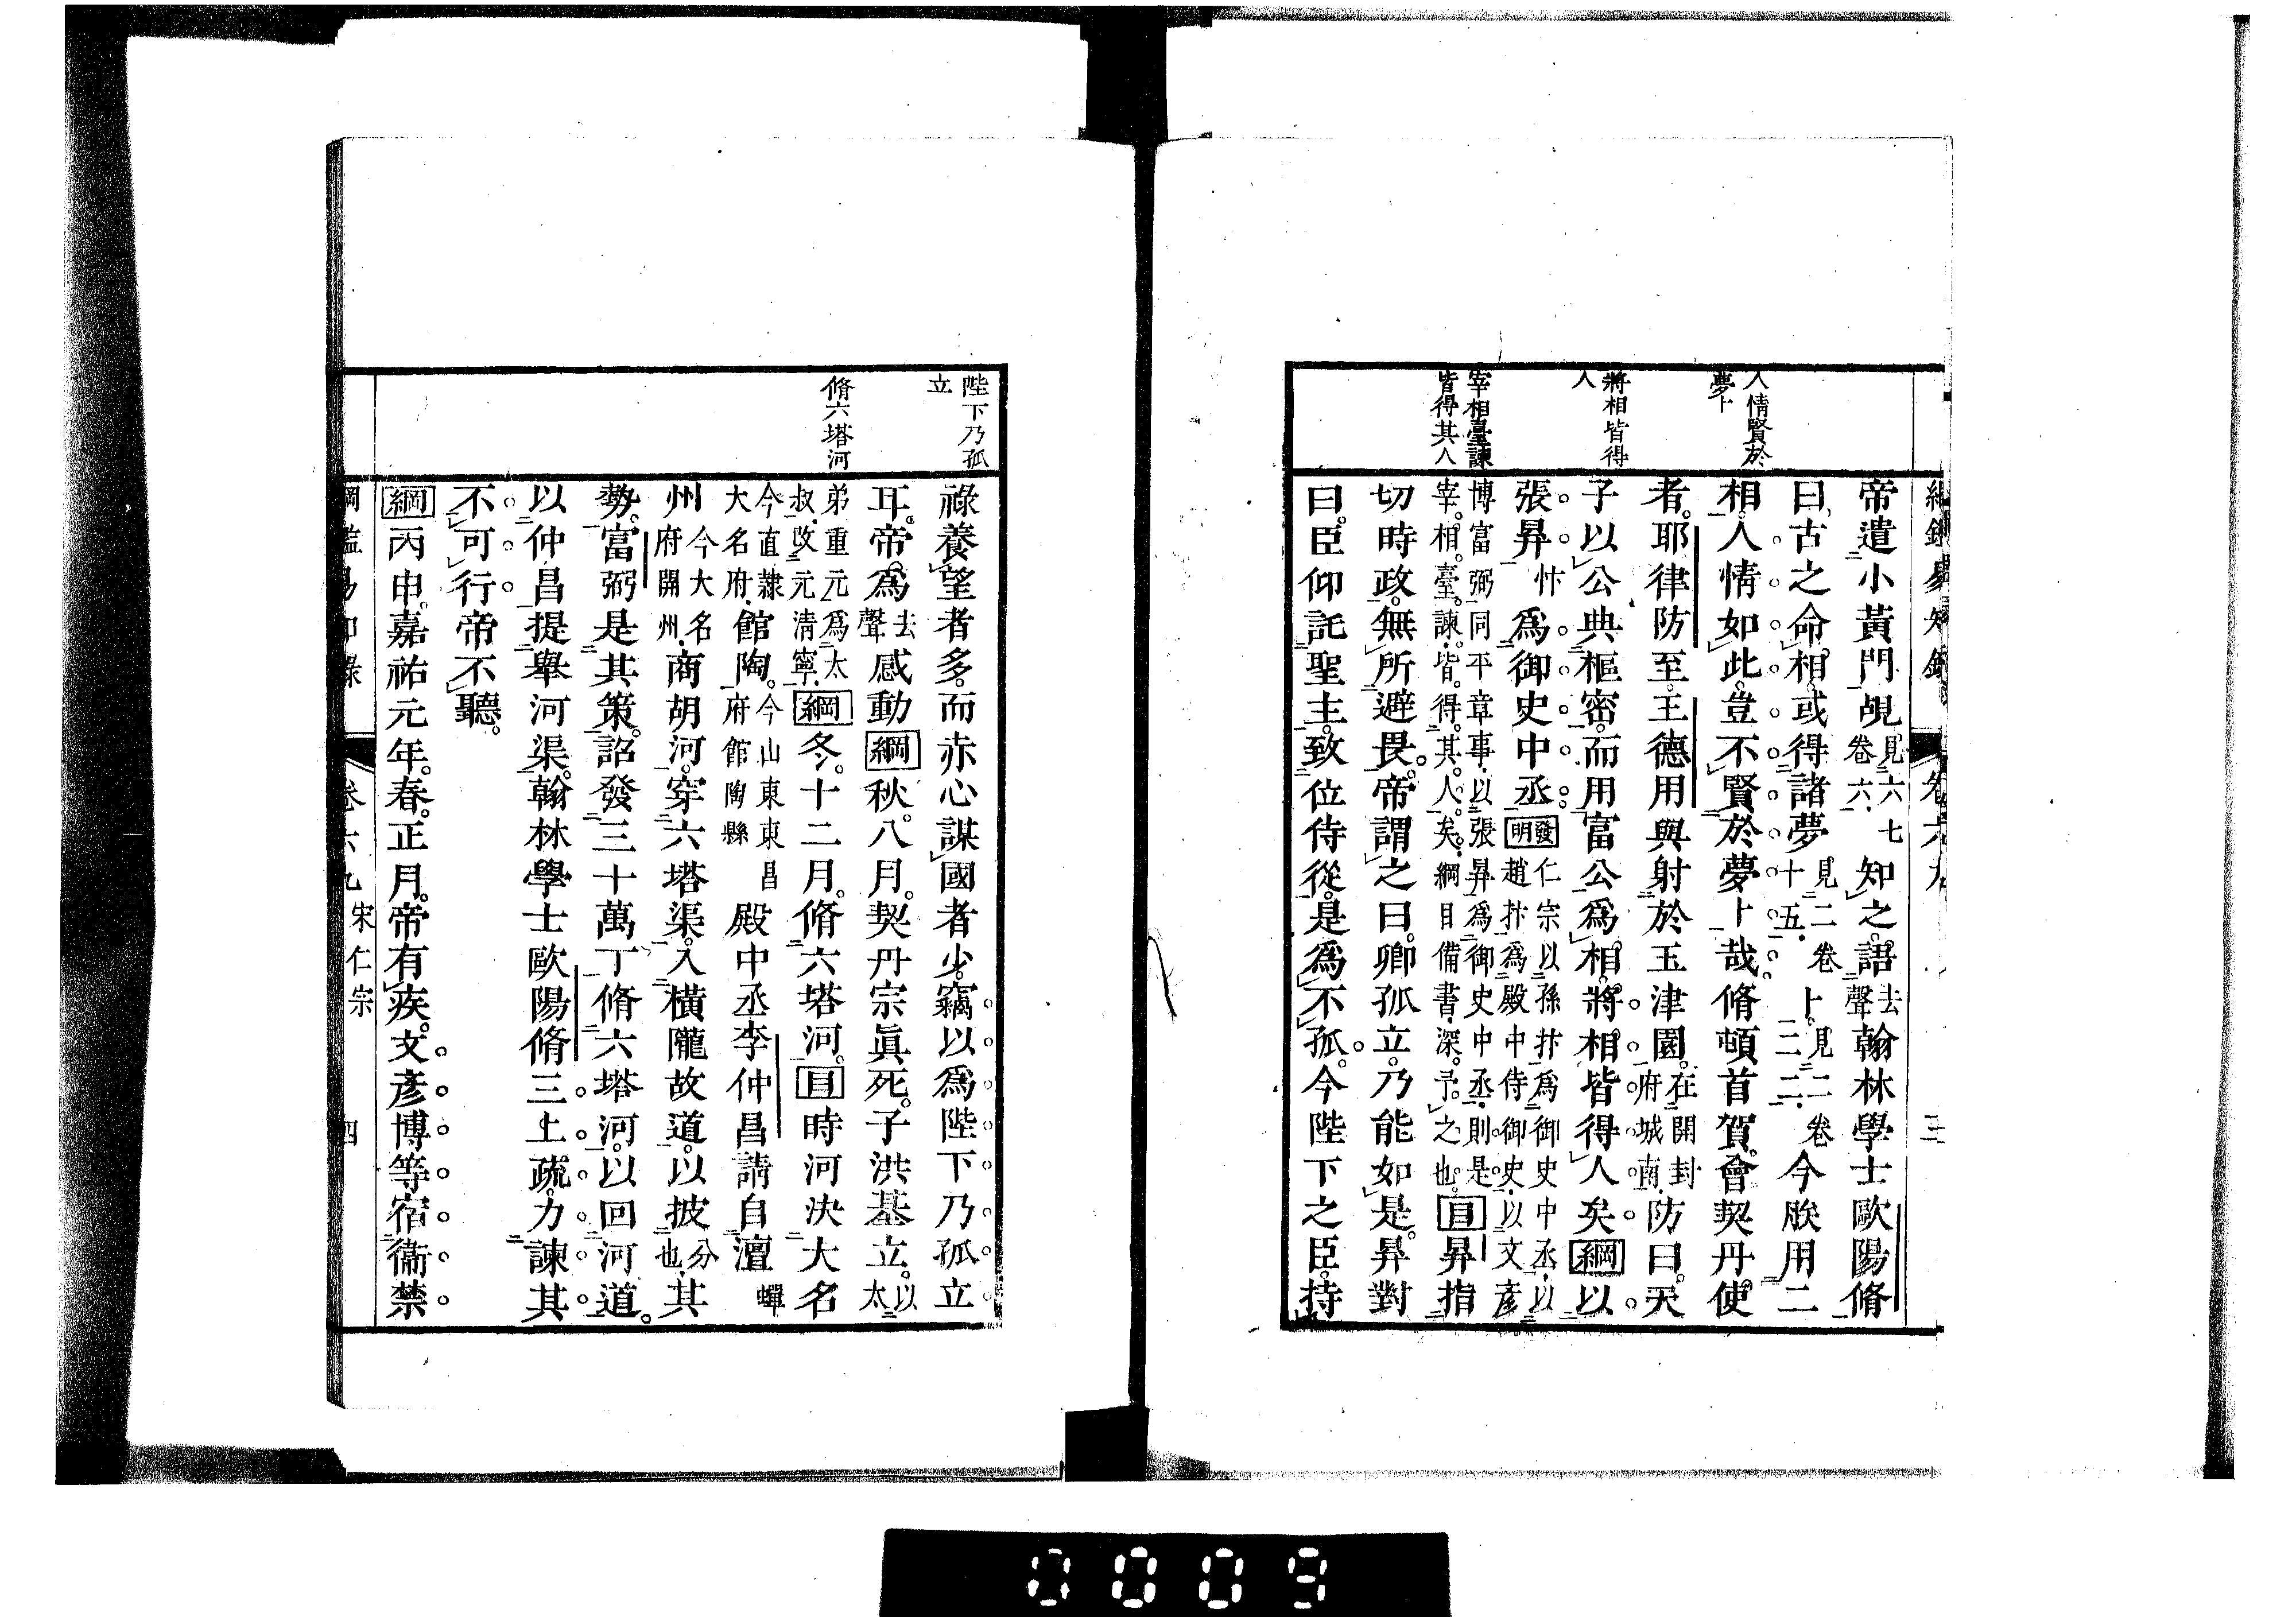 人情賢於
夢卜
將相皆得
人
宰相臺諫
皆得其人
帝遣小黃門覘見六七卷六知之語去聲翰林學士歐陽脩
曰古之命相或得諸夢見二卷十五卜見二卷二二今朕用二
相人情如此豈不賢於夢卜哉脩頓首賀會契丹使
者耶律防至王德用與射於玉津園在開封府城南防曰天
子以公典樞密而用富公爲相將相皆得人矣綱以
張昪忭爲御史中丞發明仁宗以孫抃爲御史中丞以趙抃爲殿中侍御史以文彥
博富弼同平章事以張昪爲御史中丞則是宰相臺諫皆得其人矣綱目備書深予之也目昪指
切時政無所避畏帝謂之曰卿孤立乃能如是昪對
曰臣仰託聖主致位侍從是爲不孤今陛下之臣持
陛下乃孤
立
脩六塔河
祿養望者多而赤心謀國者少竊以爲陛下乃孤立
耳帝爲去聲感動綱秋八月契丹宗眞死子洪基立以太
弟重元爲太叔改元清寧綱冬十二月脩六塔河目時河決大名
今直隸大名府館陶今山東東昌府館陶縣殿中丞李仲昌請自澶蟬
州今大名府開州商胡河穿六塔渠入橫隴故道以披分也其
勢富弼是其策詔發三十萬丁脩六塔河以回河道
以仲昌提舉河渠翰林學士歐陽脩三上疏力諫其
不可行帝不聽
綱丙申嘉祐元年春正月帝有疾文彥博等宿衞禁
卷六九 宋仁宗 四
0009